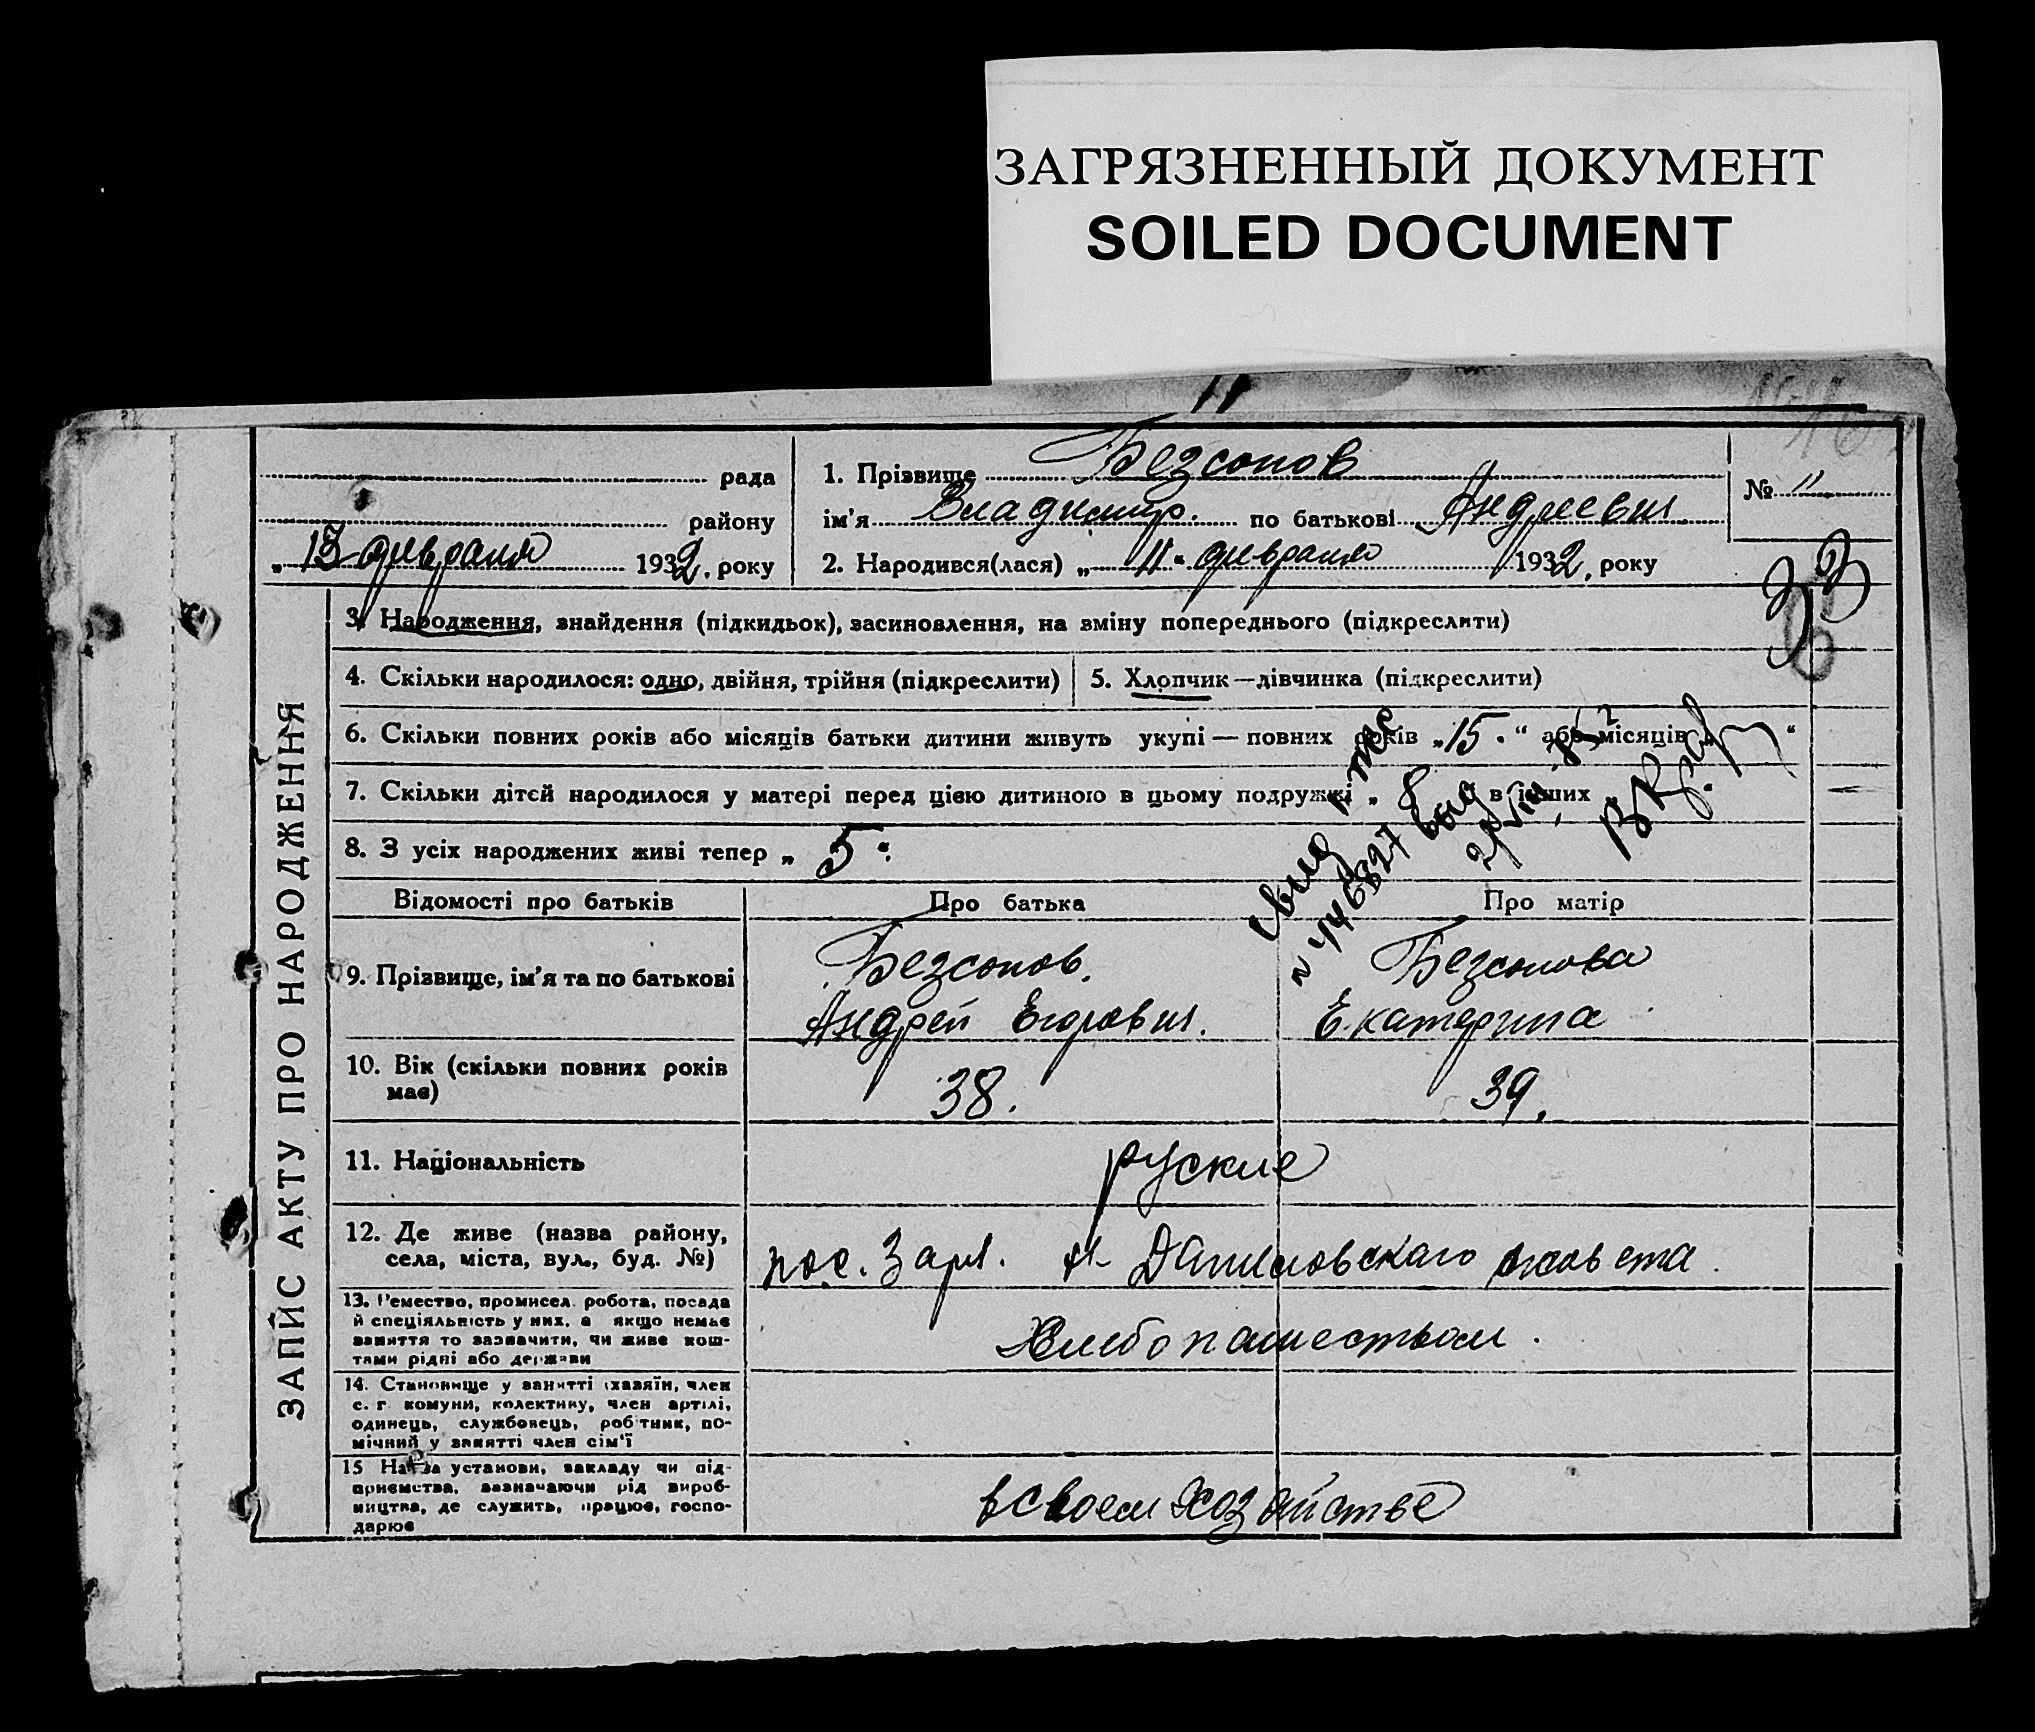 ЗАГРЯЗНЕННЫЙ ДОКУМЕНТ
SOILED DOCUMENT
11
рада
району
„ 13 февраля 1932. року
1. Прізвище Безсонов
ім'я Владимир. по батькові Андреевич
2. Народився(лася) „ 11 " февраля 1932. року
№ 11
33
ЗАПИС АКТУ ПРО НАРОДЖЕННЯ
3. Народження, знайдення (підкидьок), засиновлення, на вміну попереднього (підкреслити)
4. Скільки народилося: одно, двійня, трійня (підкреслити)
5. Хлопчик—дівчинка (підкреслити)
6. Скільки повних років або місяців батьки дитини живуть укупі — повних років „ 15. " або місяців „ "
7. Скільки дітєй народилося у матері перед цією дитиною в цьому подружжі „ 8 в інших —
8. З усіх народжених живі тепер „ 5 "
Відомості про батьків
Про батька
Про матір
9. Прізвище, ім'я та по батькові
Безсонов.
Андрей Егорович.
Безсонова
Екатерина
10. Вік (скільки повних років
має)
38.
39.
11. Національність
руские
12. Де живе (назва району,
села, міста, вул., буд. №)
пос. Заря. Даниловскаго
13. Ремество, промисел. робота, посада
й спеціяльність у них, а якщо немає
заняття то зазначити, чи живе кош-
тами рідні або держави
Хлебопашеством.
14. Становище у занятті (хазяїн, член
с. г. комуни, колективу, член артілі,
одинець, службовець, робітник, по-
мічний у занятті член сім'ї
15 Назва установи, закладу чи під-
приємства, зазначаючи рід вироб-
ництва, де служить, працює, госпо-
дарює
в своем хозяйстве